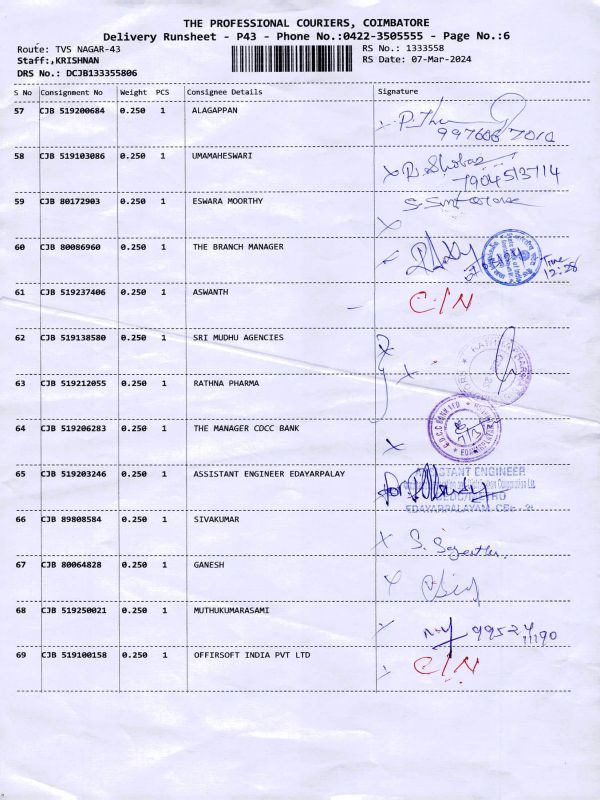 THE PROFESSIONAL COURIERS, COIMBATORE
Delivery Runsheet - P43 - Phone No.:0422-3505555 - Page No.:6
Route: TVS NAGAR-43 RS No.: 1333558
Staff:,KRISHNAN RS Date: 07-Mar-2024
DRS No.: DCJB133355806
S No Consignment No Weight PCS Consignee Details Signature
57 CJB 519200684 0.250 1 ALAGAPPAN
58 CJB 519103086 0.250 1 UMAMAHESWARI
7904513714
59 CJB 80172903 0.250 1 ESWARA MOORTHY
60 CJB 80086960 0.250 1 THE BRANCH MANAGER
Time
12:28
61 CJB 519237406 0.250 1 ASWANTH C/N
62 CJB 519138580 0.250 1 SRI MUDHU AGENCIES
63 CJB 519212055 0.250 1 RATHNA PHARMA
64 CJB 519206283 0.250 1 THE MANAGER CDCC BANK
65 CJB 519203246 0.250 1 ASSISTANT ENGINEER EDAYARPALAY
STANT ENGINEER
66 CJB 89808584 0.250 1 SIVAKUMAR
67 CJB 80064828 0.250 1 GANESH
68 CJB 519250021 0.250 1 MUTHUKUMARASAMI
69 CJB 519100158 0.250 1 OFFIRSOFT INDIA PVT LTD C/N